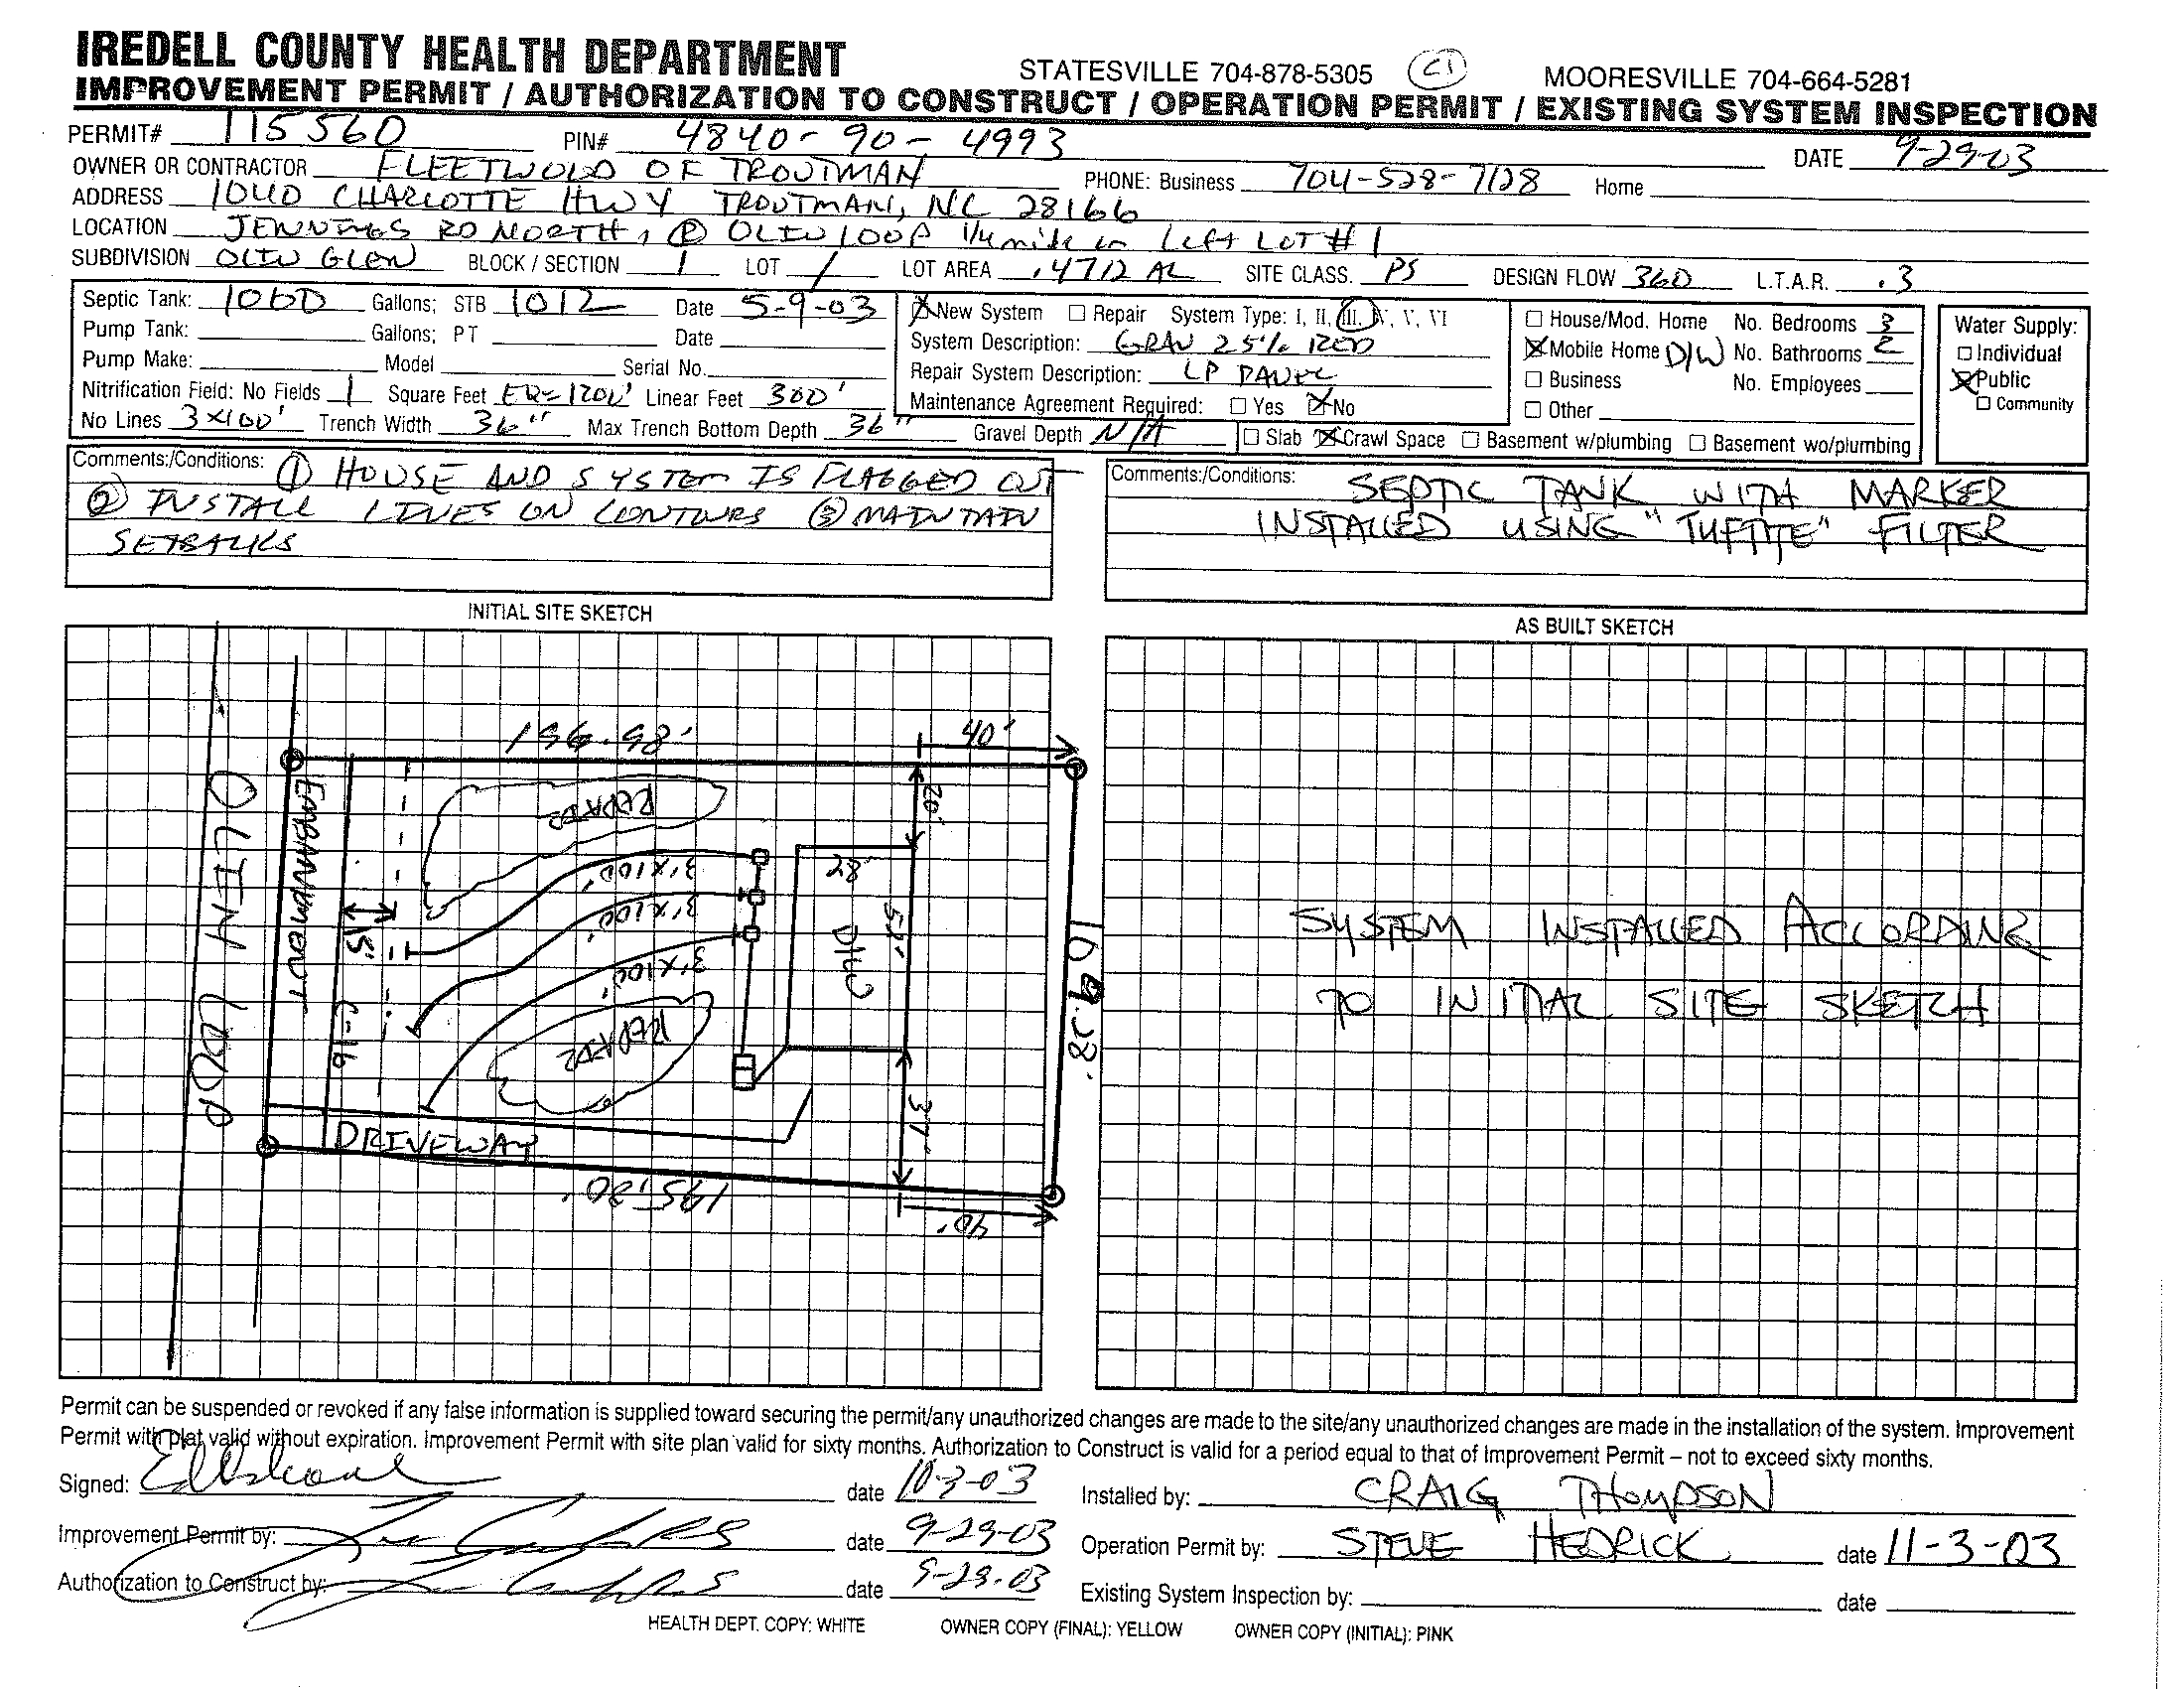 IREDELL COUNTY HEALTH DEPARTMENT
STATESVILLE 704-878-5305 MOORESVILLE 704-664-5281
IMPROVEMENT PERMIT / AUTHORIZATION TO CONSTRUCT / OPERATION PERMIT / EXISTING SYSTEM INSPECTION
PERMIT# 115560 PIN# 4840-90-4993 DATE 9-29-03
OWNER OR CONTRACTOR FLEETWOOD OF TROUTMAN PHONE: Business 704-528-7128 Home
ADDRESS 1040 CHARLOTTE HWY TROUTMAN, NC 28166
LOCATION JENNINGS RD NORTH, R OLIN LOOP 1/4 mile on Left LOT # 1
SUBDIVISION OLIN GLEN BLOCK / SECTION 1 LOT 1 LOT AREA .4712 AC SITE CLASS. PS DESIGN FLOW 360 L.T.A.R. .3
Septic Tank: 1000 Gallons; STB 1012 Date 5-9-03
Pump Tank: Gallons; PT Date
Pump Make: Model Serial No.
Nitrification Field: No Fields 1 Square Feet EQ=1200' Linear Feet 300'
No Lines 3×100' Trench Width 36" Max Trench Bottom Depth 36" Gravel Depth N/A
New System Repair System Type: I, II, III, IV, V, VI
System Description: GRAV 25% RED
Repair System Description: LP PANEL
Maintenance Agreement Required: Yes No
House/Mod. Home No. Bedrooms 3
Mobile Home D/W No. Bathrooms 2
Business No. Employees
Other
Slab Crawl Space Basement w/plumbing Basement wo/plumbing
Water Supply:
Individual
Public
Community
Comments:/Conditions: ① HOUSE AND SYSTEM IS FLAGGED OUT
② INSTALL LINES ON CONTOURS ③ MAINTAIN
SETBACKS
Comments:/Conditions: SEPTIC TANK WITH MARKER
INSTALLED USING "TUFTITE" FILTER
INITIAL SITE SKETCH
196.98'
40'
20'
REPAIR
28'
3'X100'
3'X100'
3'X100'
52'
D/W
REPAIR
37'
109.28'
OLIN LOOP
EMBANKMENT
15'
DRIVEWAY
195.30'
40'
AS BUILT SKETCH
SYSTEM INSTALLED ACCORDING
TO INITIAL SITE SKETCH
Permit can be suspended or revoked if any false information is supplied toward securing the permit/any unauthorized changes are made to the site/any unauthorized changes are made in the installation of the system. Improvement
Permit with plat valid without expiration. Improvement Permit with site plan valid for sixty months. Authorization to Construct is valid for a period equal to that of Improvement Permit – not to exceed sixty months.
Signed: date 10-3-03 Installed by: CRAIG THOMPSON
Improvement Permit by: RS date 9-29-03 Operation Permit by: STEVE HEDRICK date 11-3-03
Authorization to Construct by: RS date 9-29-03 Existing System Inspection by: date
HEALTH DEPT. COPY: WHITE OWNER COPY (FINAL): YELLOW OWNER COPY (INITIAL): PINK